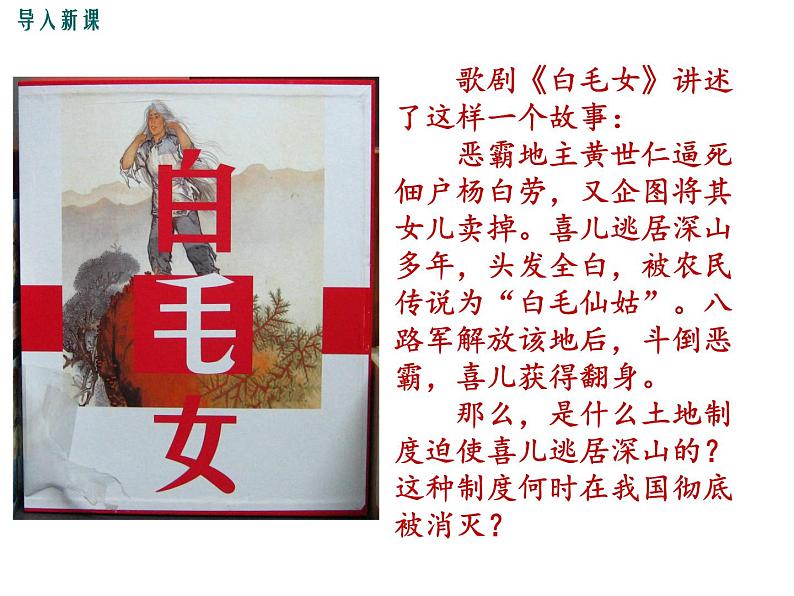 导入新课
白
毛
女
歌剧《白毛女》讲述
了这样一个故事：
恶霸地主黄世仁逼死
佃户杨白劳，又企图将其
女儿卖掉。喜儿逃居深山
多年，头发全白，被农民
传说为“白毛仙姑”。八
路军解放该地后，斗倒恶
霸，喜儿获得翻身。
那么，是什么土地制
度迫使喜儿逃居深山的？
这种制度何时在我国彻底
被消灭？